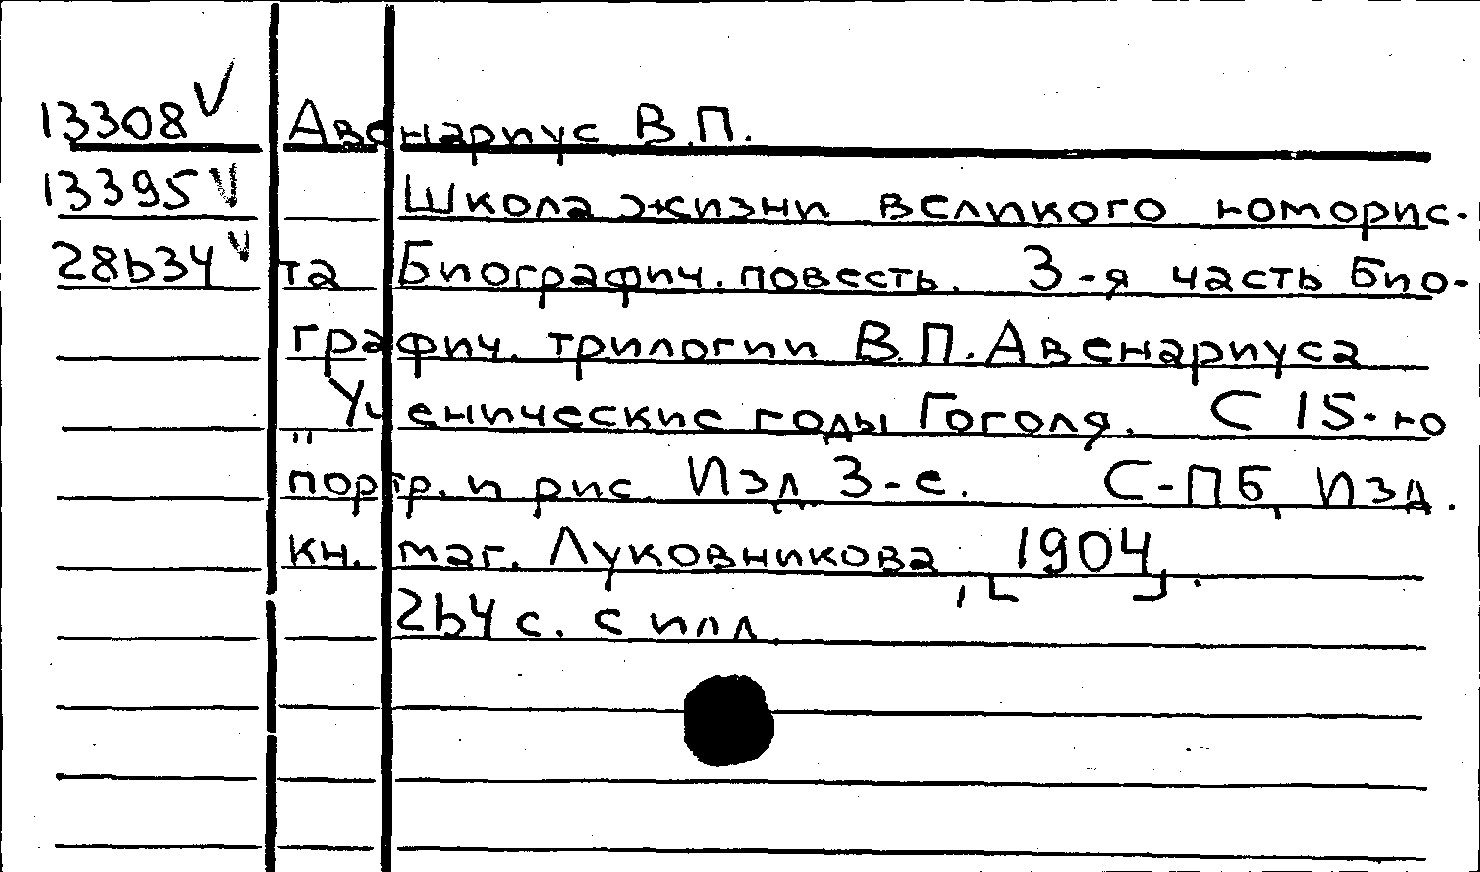 13308 V Авенариус В.П.
13395 V Школа жизни великого юморис-
28634 V та Биографич. повесть. 3-я часть Био-
графич. трилогии В.П. Авенариуса
„Ученические годы Гоголя. С 15-ю
портр. и рис. Изд 3-е. С-ПБ, Изд.
кн. маг. Луковникова, [1904].
264 с. с илл.